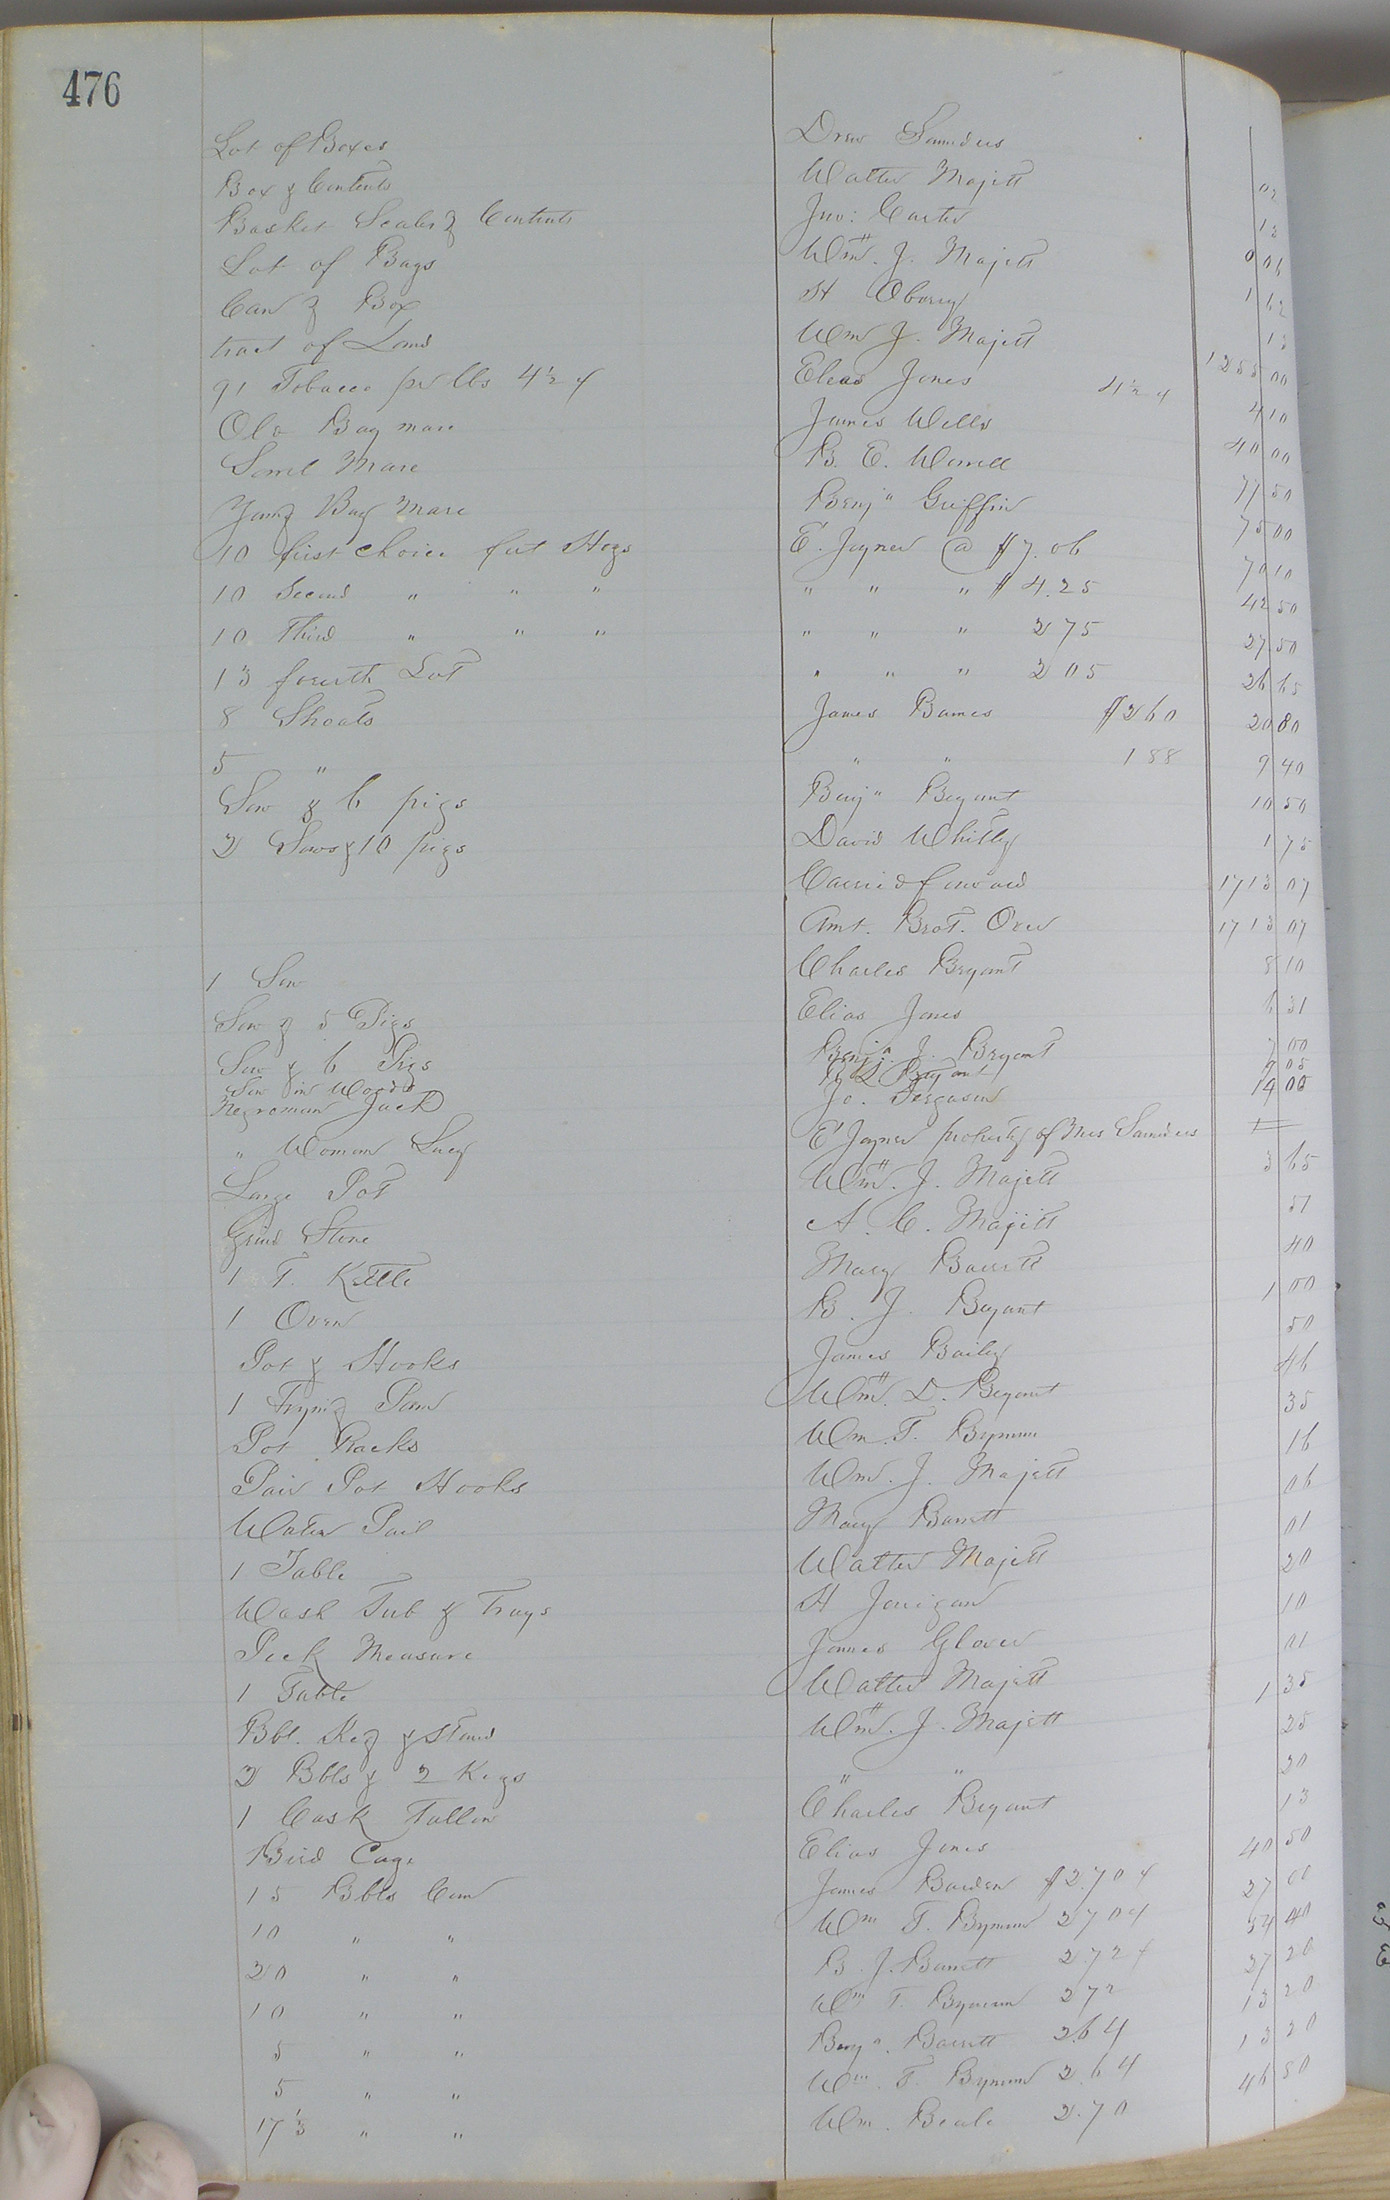 476
Lot of Boxes Drew Saunders 02
Box & Contents Walter Majett 12
Basket Scales & Contents Jno: Carter 0 06
Lot of Bags Wm. J. Majett 1 62
Can & Box H Oberry 13
tract of Land Wm J. Majett 1255 00
91 Tobacco pr lbs 4½ ¢ Elias Jones 4½ ¢ 4 10
Old Bay mare James Wells 40 00
Sorrel Mare B. E. Worrell 77 50
Young Bay Mare Benjn Griffin 75 00
10 first choice fat Hogs E. Joyner @ $7.06 70 10
10 Second " " " " " " $4.25 42 50
10 Third " " " " " " 275 27.50
13 fourth Lot " " " 205 26 65
8 Shoats James Barnes $260 20 80
5 " " " 188 9 40
Sow & 6 pigs Benjn Bryant 10 50
2 Sows & 10 pigs David Whitly 1 75
Carried forward 1713 07
Amt. Brot. Over 1713 07
1 Sow Charles Bryant 8 10
Sow & 5 Pigs Elias Jones 6 31
Sow & 6 Pigs Benjn. J. Bryant 7 00
Sow in Woods B L Bryant 9 05
Negroman Jack Jo. Ferguson 19 00
" Woman Lucy E Joyner property of Mrs Saunders
Large Pot Wm. J. Majett 3 65
Grind Stone A. C. Majett 51
1 T. Kettle Mary Barrett 40
1 Oven B. J. Bryant 1 00
Pot & Hooks James Bailey 50
1 Frying Pan Wm. D. Bryant 46
Pot Racks Wm. T. Bynum 35
Pair Pot Hooks Wm. J. Majett 16
Water Pail Mary Barrett 06
1 Table Walter Majett 01
Wash Tub & Trays H Jernigan 20
Peck Measure James Glover 10
1 Table Walter Majett 01
Bbl. Keg & Stand Wm. J. Majett 1 35
2 Bbls & 2 Kegs " " 25
1 Cask Tallow Charles Bryant 20
Bird Cage Elias Jones 13
15 Bbls Corn James Barden $2.70 ¢ 40 50
10 " " Wm T. Bynum 270 ¢ 27 00
20 " " B. J. Barrett 272 ¢ 54 40
10 " " Wm T. Bynum 272 27 20
5 " " Benjn. Barrett 264 13 20
5 " " Wm. T. Bynum 2.64 13 20
17⅓ " " Wm. Beale 2.70 46 80